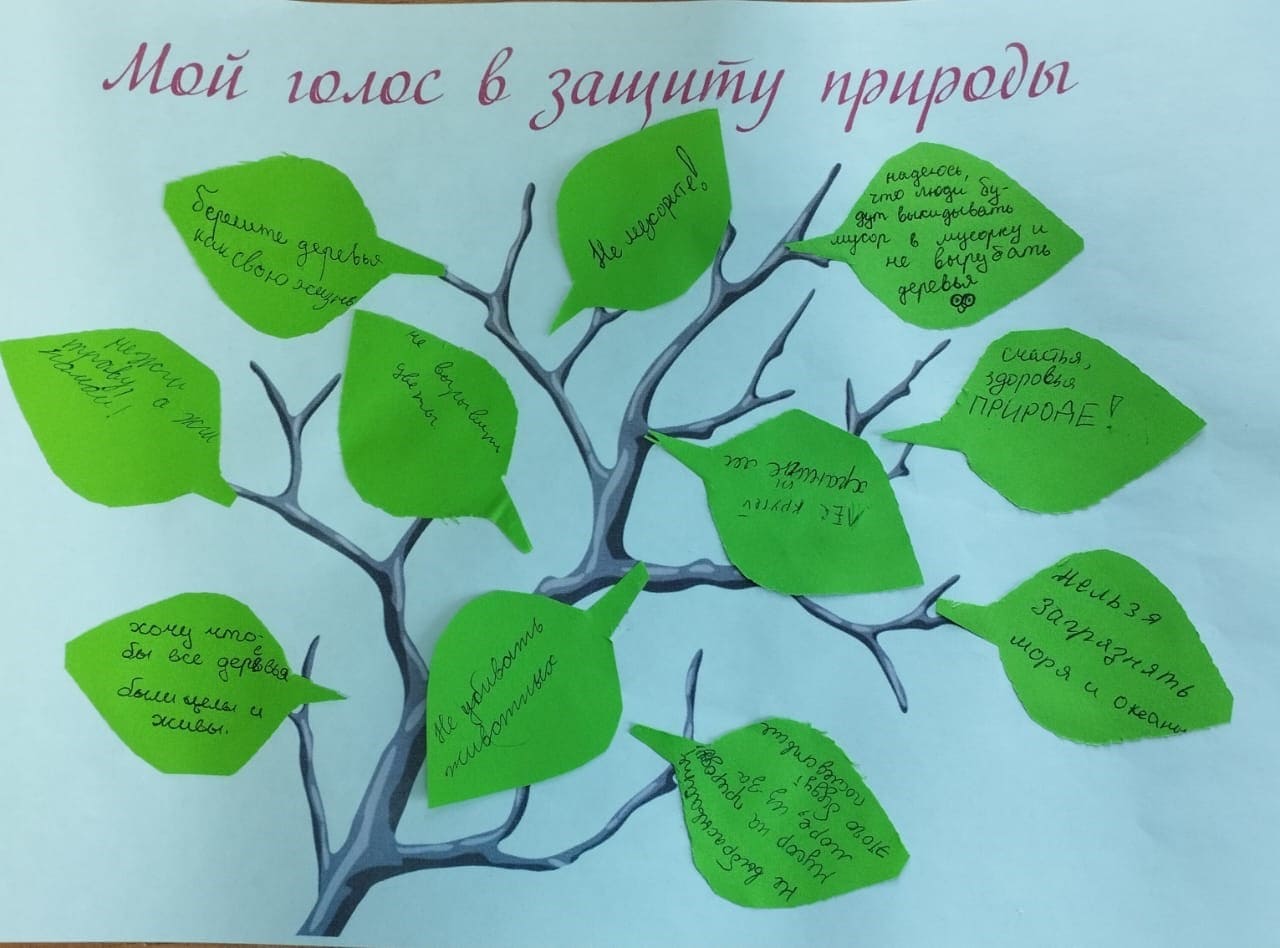 Мой голос в защиту природы
Берегите деревья
как свою жизнь
Не мусорите!
надеюсь,
что люди бу-
дут выкидывать
мусор в мусорку и
не вырубать
деревья
не жги
траву, а жги
не вырывать
цветы
счастья,
здоровья
ПРИРОДЕ!
храните лес
ЛЕС крутой
хочу что-
бы все деревья
были целы и
живы.
Не убивать
животных
Нельзя
загрязнять
моря и океаны
Не выбрасывайте
мусор на природе,
море, из за
этого будут
последствие